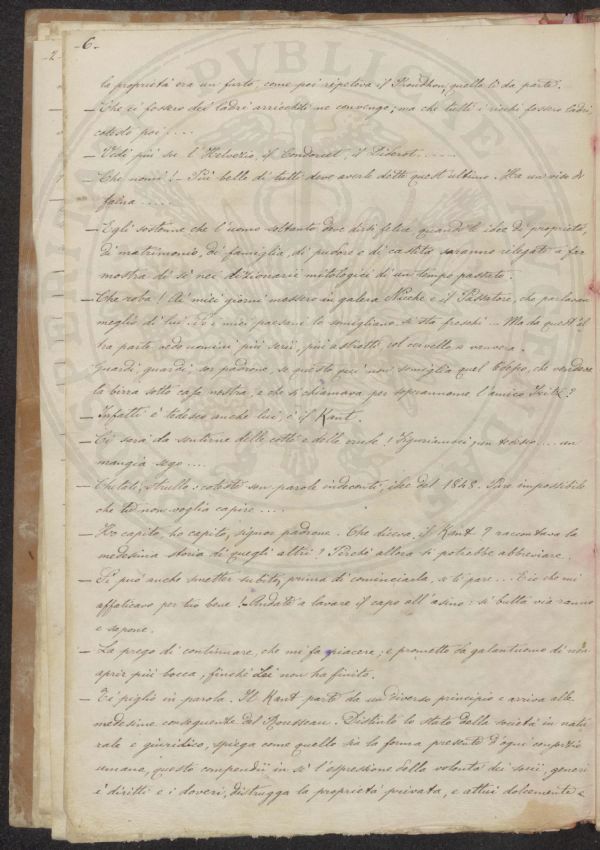 -6-
-2-
la proprietá era un furto, come poi ripeteva il Proudhon, quello lì da parte.
— Che vi fossero dei ladri arricchiti ne convengo; ma che tutti i ricchi fossero ladri,
cotesto poi....
— Vedi più su l'Helvezio, il Condorcet, il Diderot......
— Che nomi! – Più belle di tutti deve averle dette quest'ultimo. Ha un viso di
faina.....
— Egli sostenne che l'uomo soltanto deve dirsi felice quando le idee di proprietà,
di matrimonio, di famiglia, di pudore e di castità saranno rilegate a far
mostra di sè nei dizionarii mitologici di un tempo passato.
— Che roba! Ai miei giorni messero in galera e il Passatore, che parlavan
meglio di lui. Se i miei paesani lo somigliano, si sta freschi... Ma da quest'al
tra parte vedo uomini più serii, più col cervello a
Guardi, guardi, sor padrone, se questo qui non somiglia quel che vendeva
la birra sotto casa nostra, e che si chiamava per soprannome l'amico Fritz?
— Infatti è tedesco anche lui, è il Kant.
— Ci sarà da sentirne delle cotte e delle crude! Figuriamoci un tedesco.... un
mangia sego....
— Chetati, : coteste son parole indecenti, idee del 1848. Pare impossibile
che tu non voglia capire....
— Ho capito, ho capito, signor padrone. Che diceva il Kant? raccontava la
medesima storia di quegli altri? Perchè allora si potrebbe abbreviare.
— Si può anche smetter subito, prima di cominciarla, se ti pare... E io che mi
affaticavo per tuo bene! Andate a lavare il capo all'asino: si butta via ranno
e sapone.
— La prego di continuare, che mi fa piacere; e prometto da galantuomo di non
aprir più bocca, finchè Lei non ha finito.
— Ti piglio in parola. Il Kant partì da un diverso principio e arriva alle
medesime conseguenze del Rousseau. Distinto lo stato della società in natu
rale e giuridico, spiega come quello sia la forma presente d'ogni consorzio
umano, questo compendii in sè l'espressione della volontà dei socii, generi
i diritti e i doveri, distrugga la proprietà privata, e attui dolcemente e